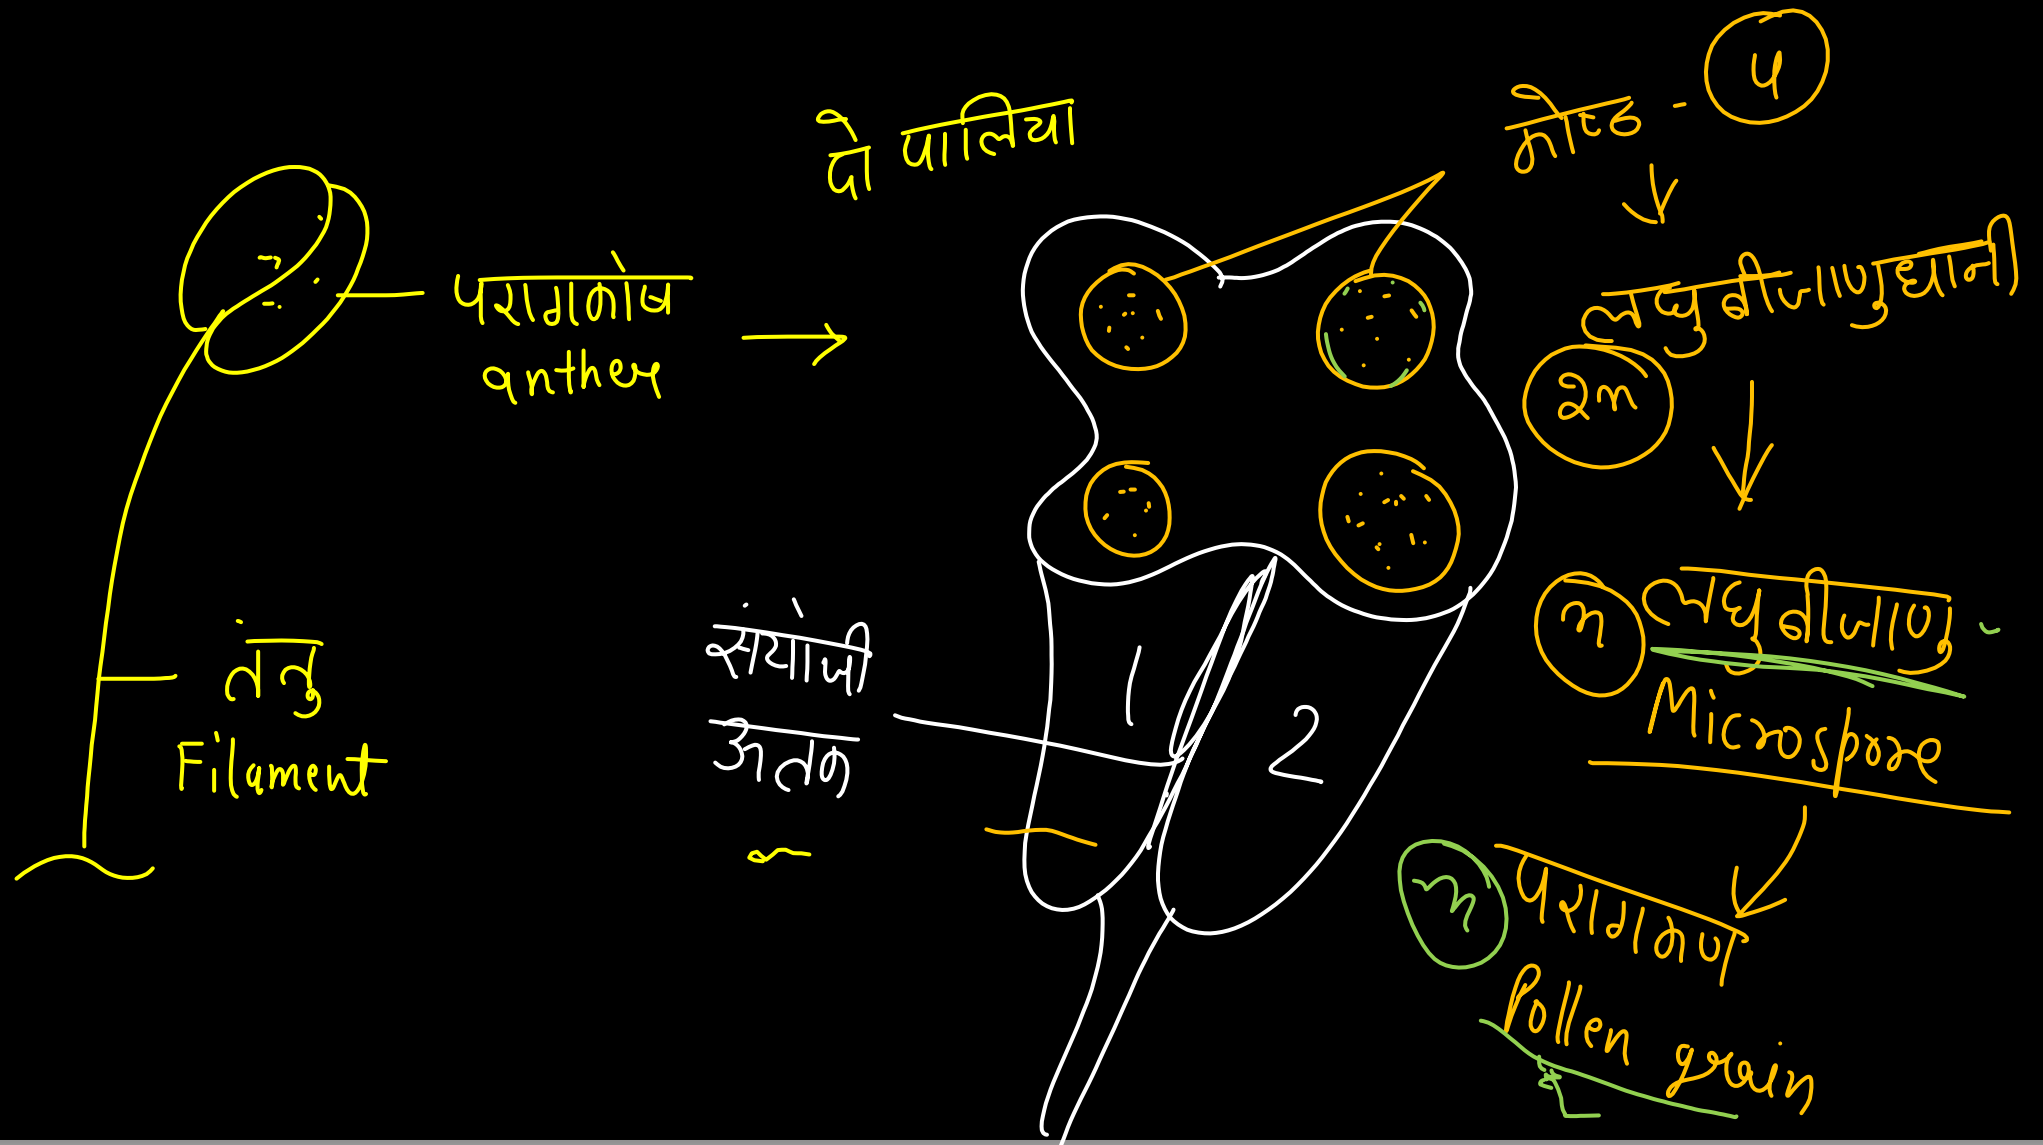 दो पालिया
परागकोष
anther
तंतु
Filament
संयोजी
ऊतक
1
2
कोष्ठ - 4
लघुबीजाणुधानी
2n
n लघुबीजाणु
Microspore
n परागकण
Pollen grain